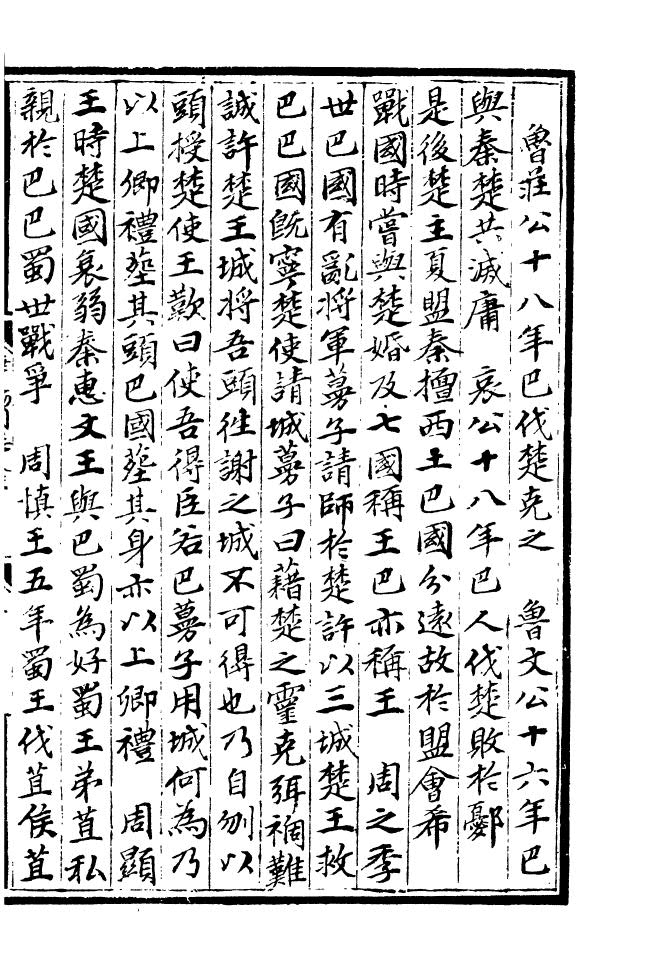 魯莊公十八年巴伐楚克之　魯文公十六年巴
與秦楚共滅庸　哀公十八年巴人伐楚敗於鄾
是後楚主夏盟秦擅西土巴國分遠故於盟會希
戰國時嘗與楚婚及七國稱王巴亦稱王　周之季
世巴國有亂將軍蔓子請師於楚許以三城楚王救
巴巴國既寧楚使請城蔓子曰藉楚之靈克弭禍難
誠許楚王城將吾頭往謝之城不可得也乃自刎以
頭授楚使王歎曰使吾得臣若巴蔓子用城何為乃
以上卿禮塟其頭巴國塟其身亦以上卿禮　周顯
王時楚國衰弱秦惠文王與巴蜀為好蜀王弟苴私
親於巴巴蜀世戰爭　周慎王五年蜀王伐苴侯苴